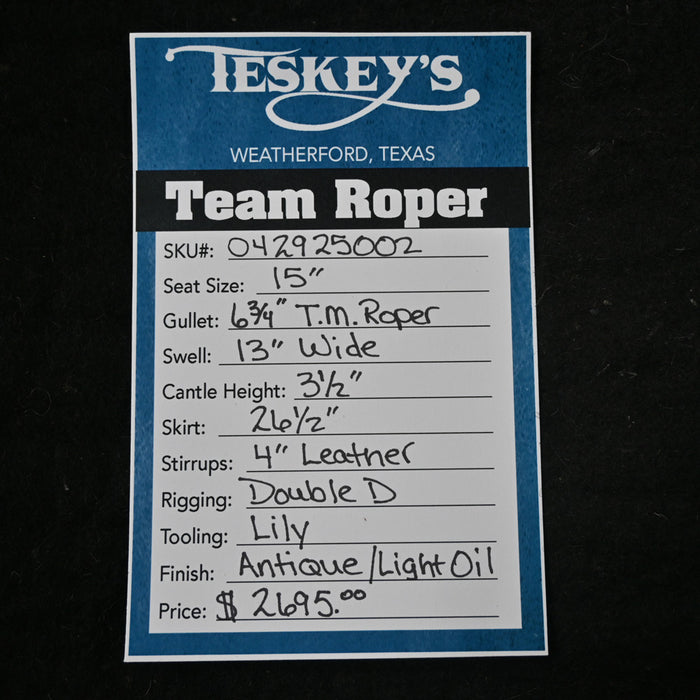 TESKEY'S
WEATHERFORD, TEXAS
Team Roper
SKU#: 042925002
Seat Size: 15"
Gullet: 6 3/4" T.M. Roper
Swell: 13" Wide
Cantle Height: 3 1/2"
Skirt: 26 1/2"
Stirrups: 4" Leather
Rigging: Double D
Tooling: Lily
Finish: Antique/Light Oil
Price: $ 2695.00